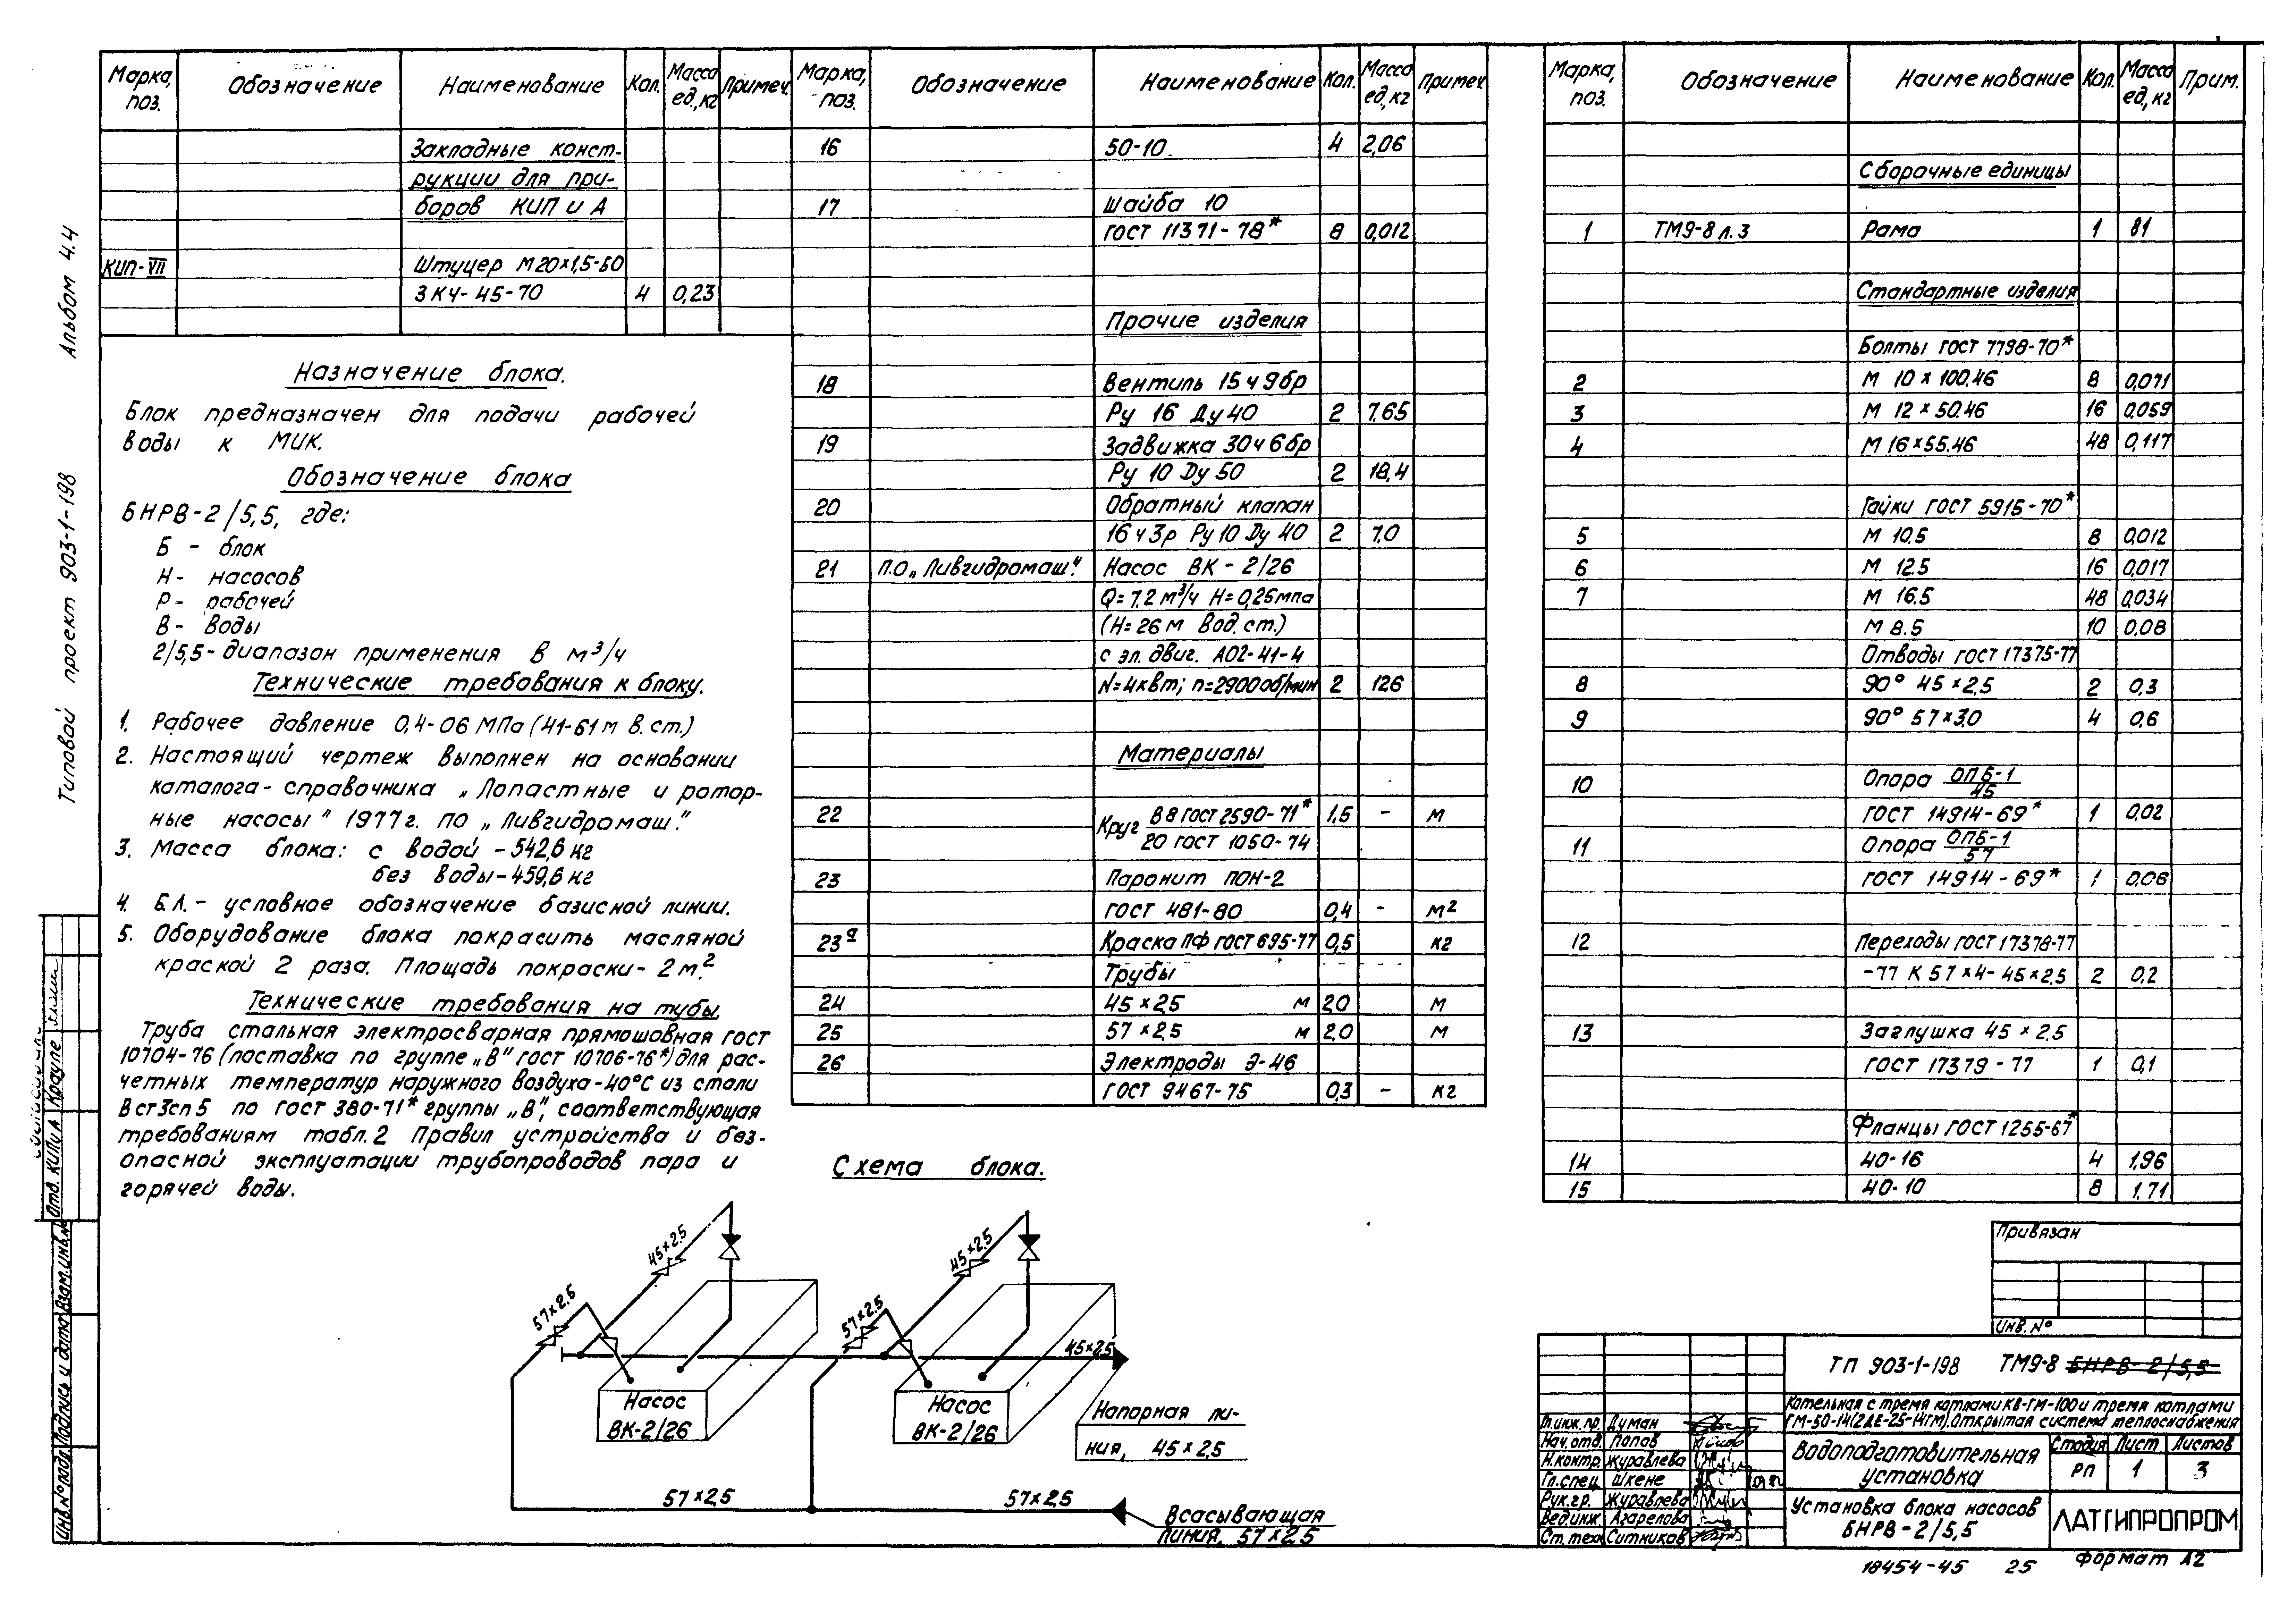 Альбом 4.4
Типовой проект 903-1-198
Марка, поз. Обозначение Наименование Кол. Масса ед,кг Примеч.
Закладные конст-
рукции для при-
боров КИП и А
КИП-VII Штуцер М20×1,5-50
ЗК4-45-70 4 0,23
Назначение блока.
Блок предназначен для подачи рабочей
воды к МИК.
Обозначение блока
БНРВ-2/5,5, где:
Б - блок
Н - насосов
Р - рабочей
В - воды
2/5,5-диапазон применения в м³/ч
Технические требования к блоку.
1. Рабочее давление 0,4-06 МПа (41-61 м в.ст.)
2. Настоящий чертеж выполнен на основании
каталога-справочника „Лопастные и ротор-
ные насосы" 1977г. ПО „Ливгидромаш."
3. Масса блока: с водой -542,6 кг
без воды-459,6 кг
4. Б.Л.- условное обозначение базисной линии.
5. Оборудование блока покрасить масляной
краской 2 раза. Площадь покраски-2м.²
Технические требования на тубы.
Труба стальная электросварная прямошовная ГОСТ
10704-76 (поставка по группе „В" ГОСТ 10706-76*) для рас-
четных температур наружного воздуха-40°С из стали
Вст3сп5 по ГОСТ 380-71* группы „В", соответствующая
требованиям табл.2 Правил устройства и без-
опасной эксплуатации трубопроводов пара и
горячей воды.
Марка, поз. Обозначение Наименование Кол. Масса ед,кг Примеч.
16 50-10. 4 2,06
17 Шайба 10
ГОСТ 11371-78* 8 0,012
Прочие изделия
18 Вентиль 15ч9бр
Ру 16 Ду 40 2 7.65
19 Задвижка 30ч6бр
Ру 10 Ду 50 2 18,4
20 Обратный клапан
16ч3р Ру 10 Ду 40 2 7.0
21 П.О „Ливгидромаш." Насос ВК-2/26
Q=7.2 м³/ч Н=0,26мпа
(Н=26 м вод.ст.)
с эл. двиг. АО2-41-4
N=4квт; n=2900об/мин 2 126
Материалы
22 Круг В8 ГОСТ 2590-71* 1,5 - м
20 ГОСТ 1050-74
23 Паронит ПОН-2
ГОСТ 481-80 0,4 - м²
23а Краска ПФ ГОСТ 695-77 0,5 кг
Трубы
24 45×2,5 м 2,0 м
25 57×2,5 м 2,0 м
26 Электроды Э-46
ГОСТ 9467-75 0,3 - кг
Марка, поз. Обозначение Наименование Кол. Масса ед,кг Прим.
Сборочные единицы
1 ТМ9-8 л.3 Рама 1 81
Стандартные изделия
Болты ГОСТ 7798-70*
2 М 10×100.46 8 0,071
3 М 12×50.46 16 0,059
4 М 16×55.46 48 0,117
Гайки ГОСТ 5915-70*
5 М 10.5 8 0,012
6 М 12.5 16 0,017
7 М 16.5 48 0,034
М 8.5 10 0,08
Отводы ГОСТ 17375-77
8 90° 45×2,5 2 0,3
9 90° 57×3,0 4 0,6
10 Опора ОПБ-1/45
ГОСТ 14914-69* 1 0,02
11 Опора ОПБ-1/57
ГОСТ 14914-69* 1 0,06
12 Переходы ГОСТ 17378-77
-77 К 57×4-45×2,5 2 0,2
13 Заглушка 45×2,5
ГОСТ 17379-77 1 0,1
Фланцы ГОСТ 1255-67*
14 40-16 4 1,96
15 40-10 8 1.71
Схема блока.
45×2.5
45×2.5
57×2.5
57×2.5
45×2.5
Насос
ВК-2/26
Насос
ВК-2/26
Напорная ли-
ния, 45×2,5
57×2,5
57×2,5
Всасывающая
линия, 57×2,5
Привязан
Инв.№
ТП 903-1-198 ТМ9-8 БНРВ-2/5,5
Котельная с тремя котлами КВ-ГМ-100 и тремя котлами
ГМ-50-14(2ДЕ-25-14ГМ). Открытая система теплоснабжения
Водоподготовительная
установка
Стадия Лист Листов
РП 1 3
Установка блока насосов
БНРВ-2/5,5
ЛАТГИПРОПРОМ
Гл.инж.пр. Думан
Нач.отд. Попов
Н.контр. Журавлева
Гл.спец. Шкене
Рук.гр. Журавлева
Вед.инж. Агарелова
Ст.техн. Ситников
18454-45 25 Формат А2
Отд. КИПиА Крауле
Инв.№ подл. Подпись и дата Взам.инв.№